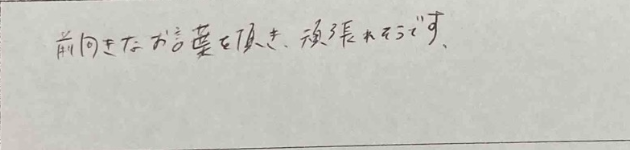 前向きなお言葉を頂き、頑張れそうです、